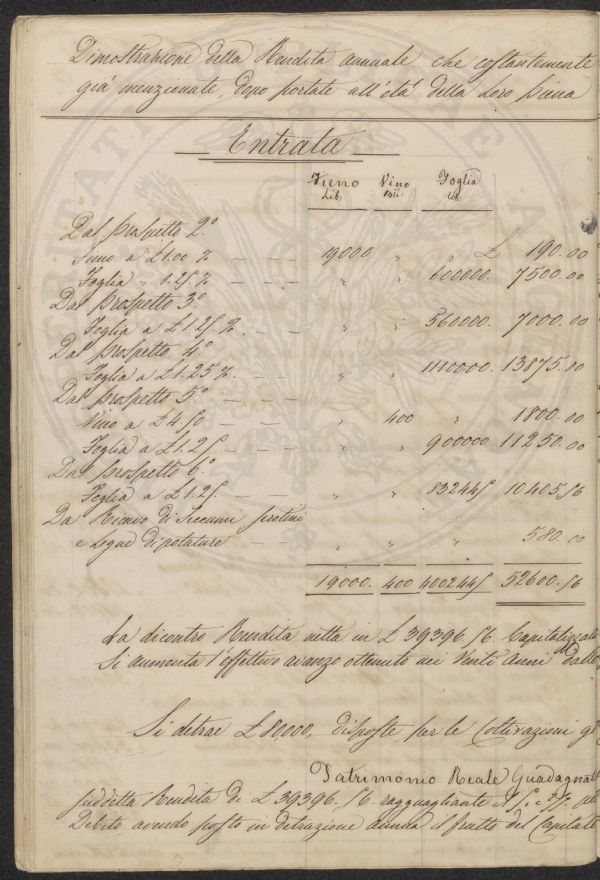 Dimostrazione della Rendita annuale che costantemente
già menzionate, dopo portate all'età della loro piena
Entrata
Fieno Vino Foglia
Lib. Lib.
Dal prospetto 2.°
Fieno a £ 1.00 % — — — 19000 " " £ 190.00
Foglia " 1.25 % — — — " " 600000. 7500.00
Dal prospetto 3.°
Foglia a £ 1.25. % — — " " 560000. 7000.00
Dal prospetto 4.°
Foglia a £ 1.25 %. — — " " 1110000. 13875.00
Dal prospetto 5.° — — —
Vino a £ 4.50 — — — " 400 " 1800.00
Foglia a £ 1.25 — — — " " 900000 11250.00
Dal prospetto 6.° — — —
Foglia a £ 1.25. — — — " " 832445 10405.56
Da Ricavo di Seccumi serotini
e Legne di potature — — " " " 580.00
19000. 400 4002445 52600.56
La dicontro Rendita netta in £ 39396.56. Capitalizzata
Si aumenta l'effettivo avanzo ottenuto nei Venti Anni dalle
Si detrae £ 80,000, disposte per le Coltivazioni
Patrimonio Reale Guadagnat
suddetta Rendita di £ 39396.56. ragguagliante
Debito avendo posto in detrazione annua il frutto del Capitale